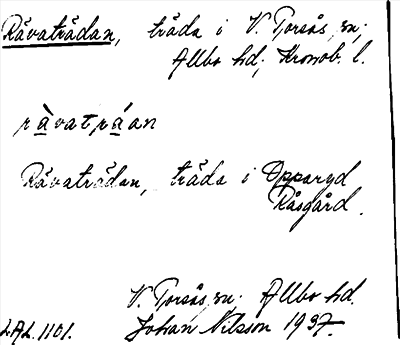 Råvatrådan, tråda i V. Torsås sn;
Allbo hd; Kronob. l.
råvatråan
Råvatrådan, tråda i Opparyd
Råsgård.
V. Torsås sn. Allbo hd.
LAL. 1101. Johan Nilsson 1937.